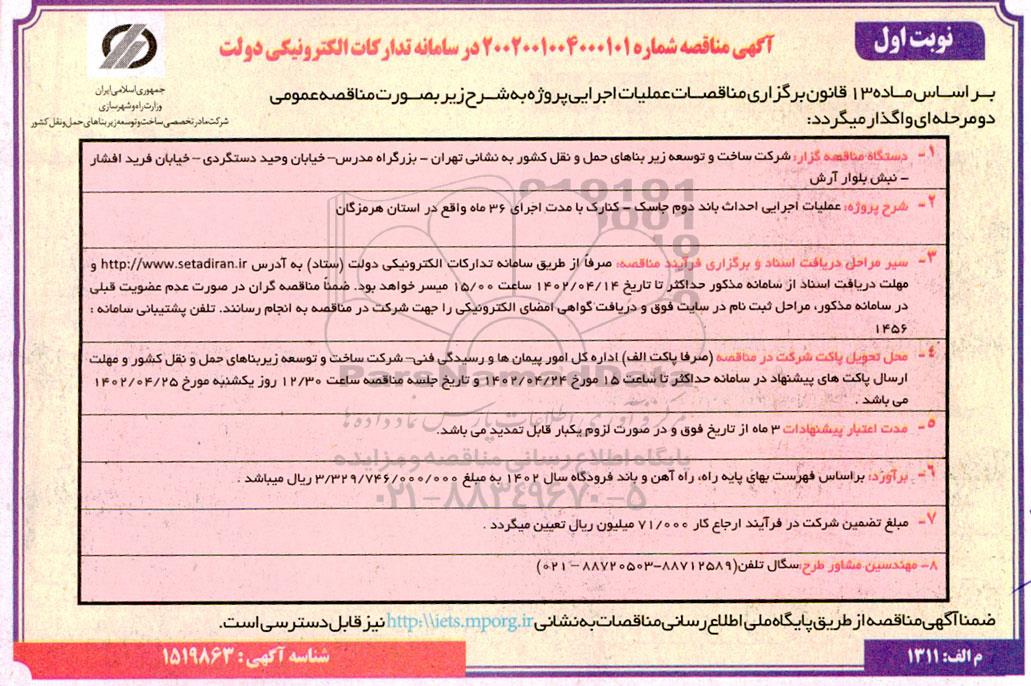 نوبت اول
آگهی مناقصه شماره ۲۰۰۲۰۰۱۰۰۴۰۰۰۱۰۱ در سامانه تدارکات الکترونیکی دولت
جمهوری اسلامی ایران
وزارت راه و شهرسازی
شرکت مادر تخصصی ساخت و توسعه زیربناهای حمل و نقل کشور
بر اساس ماده ۱۳ قانون برگزاری مناقصات عملیات اجرایی پروژه به شرح زیر بصورت مناقصه عمومی
دو مرحله ای واگذار میگردد:
۱- دستگاه مناقصه گزار: شرکت ساخت و توسعه زیر بناهای حمل و نقل کشور به نشانی تهران - بزرگراه مدرس- خیابان وحید دستگردی - خیابان فرید افشار
- نبش بلوار آرش
۲- شرح پروژه: عملیات اجرایی احداث باند دوم جاسک - کنارک با مدت اجرای ۳۶ ماه واقع در استان هرمزگان
۳- سیر مراحل دریافت اسناد و برگزاری فرآیند مناقصه: صرفاً از طریق سامانه تدارکات الکترونیکی دولت (ستاد) به آدرس http://www.setadiran.ir و
مهلت دریافت اسناد از سامانه مذکور حداکثر تا تاریخ ۱۴۰۲/۰۴/۱۴ ساعت ۱۵/۰۰ میسر خواهد بود. ضمناً مناقصه گران در صورت عدم عضویت قبلی
در سامانه مذکور، مراحل ثبت نام در سایت فوق و دریافت گواهی امضای الکترونیکی را جهت شرکت در مناقصه به انجام رسانند. تلفن پشتیبانی سامانه :
۱۴۵۶
۴- محل تحویل پاکت شرکت در مناقصه (صرفا پاکت الف) اداره کل امور پیمان ها و رسیدگی فنی- شرکت ساخت و توسعه زیربناهای حمل و نقل کشور و مهلت
ارسال پاکت های پیشنهاد در سامانه حداکثر تا ساعت ۱۵ مورخ ۱۴۰۲/۰۴/۲۴ و تاریخ جلسه مناقصه ساعت ۱۲/۳۰ روز یکشنبه مورخ ۱۴۰۲/۰۴/۲۵
می باشد .
۵- مدت اعتبار پیشنهادات ۳ ماه از تاریخ فوق و در صورت لزوم یکبار قابل تمدید می باشد.
۶- برآورد: براساس فهرست بهای پایه راه، راه آهن و باند فرودگاه سال ۱۴۰۲ به مبلغ ۳/۳۲۹/۷۴۶/۰۰۰/۰۰۰ ریال میباشد .
۷- مبلغ تضمین شرکت در فرآیند ارجاع کار ۷۱/۰۰۰ میلیون ریال تعیین میگردد .
۸- مهندسین مشاور طرح: سگال تلفن(۸۸۷۱۲۵۸۹-۸۸۷۲۰۵۰۳ - ۰۲۱)
ParsNamadData
مرکز فرآوری اطلاعات پارس نماد داده ها
پایگاه اطلاع رسانی مناقصه و مزایده
۰۲۱-۸۸۳۴۹۶۷۰-۵
ضمنا آگهی مناقصه از طریق پایگاه ملی اطلاع رسانی مناقصات به نشانی http:\\iets.mporg.ir نیز قابل دسترسی است.
م الف: ۱۳۱۱
شناسه آگهی : ۱۵۱۹۸۶۳